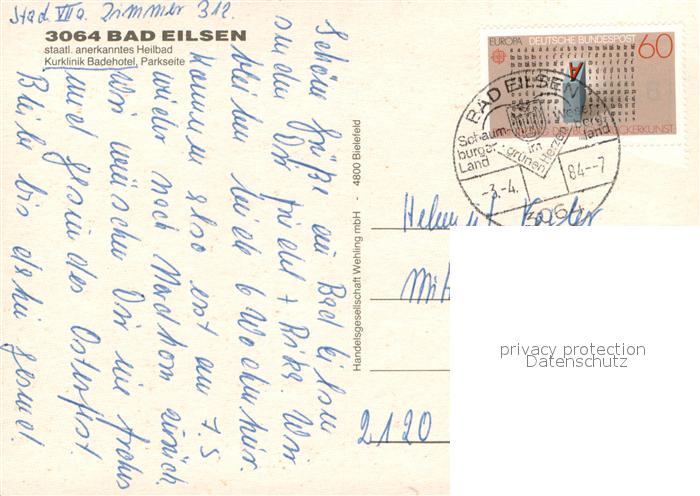 Stat. VII a. Zimmer 312.
3064 BAD EILSEN
staatl. anerkanntes Heilbad
Kurklinik Badehotel, Parkseite
Schöne Grüße aus Bad Eilsen
senden Dir Friedel + Rike. Wir
bleiben beide 6 Wochen hier.
kommen also erst am 7.5
wieder nach Nordhorn zurück
Wir wünschen Dir ein frohes
und gesundes Osterfest.
Bleibe bis dahin gesund.
Handelsgesellschaft Wehling mbH - 4800 Bielefeld
EUROPA DEUTSCHE BUNDESPOST 60
BAD EILSEN
Schaum-
burger
Land
im
grünen
Herzen
Weser
land
-3.-4.
84--7
3064
Helmut
2120
privacy protection
Datenschutz